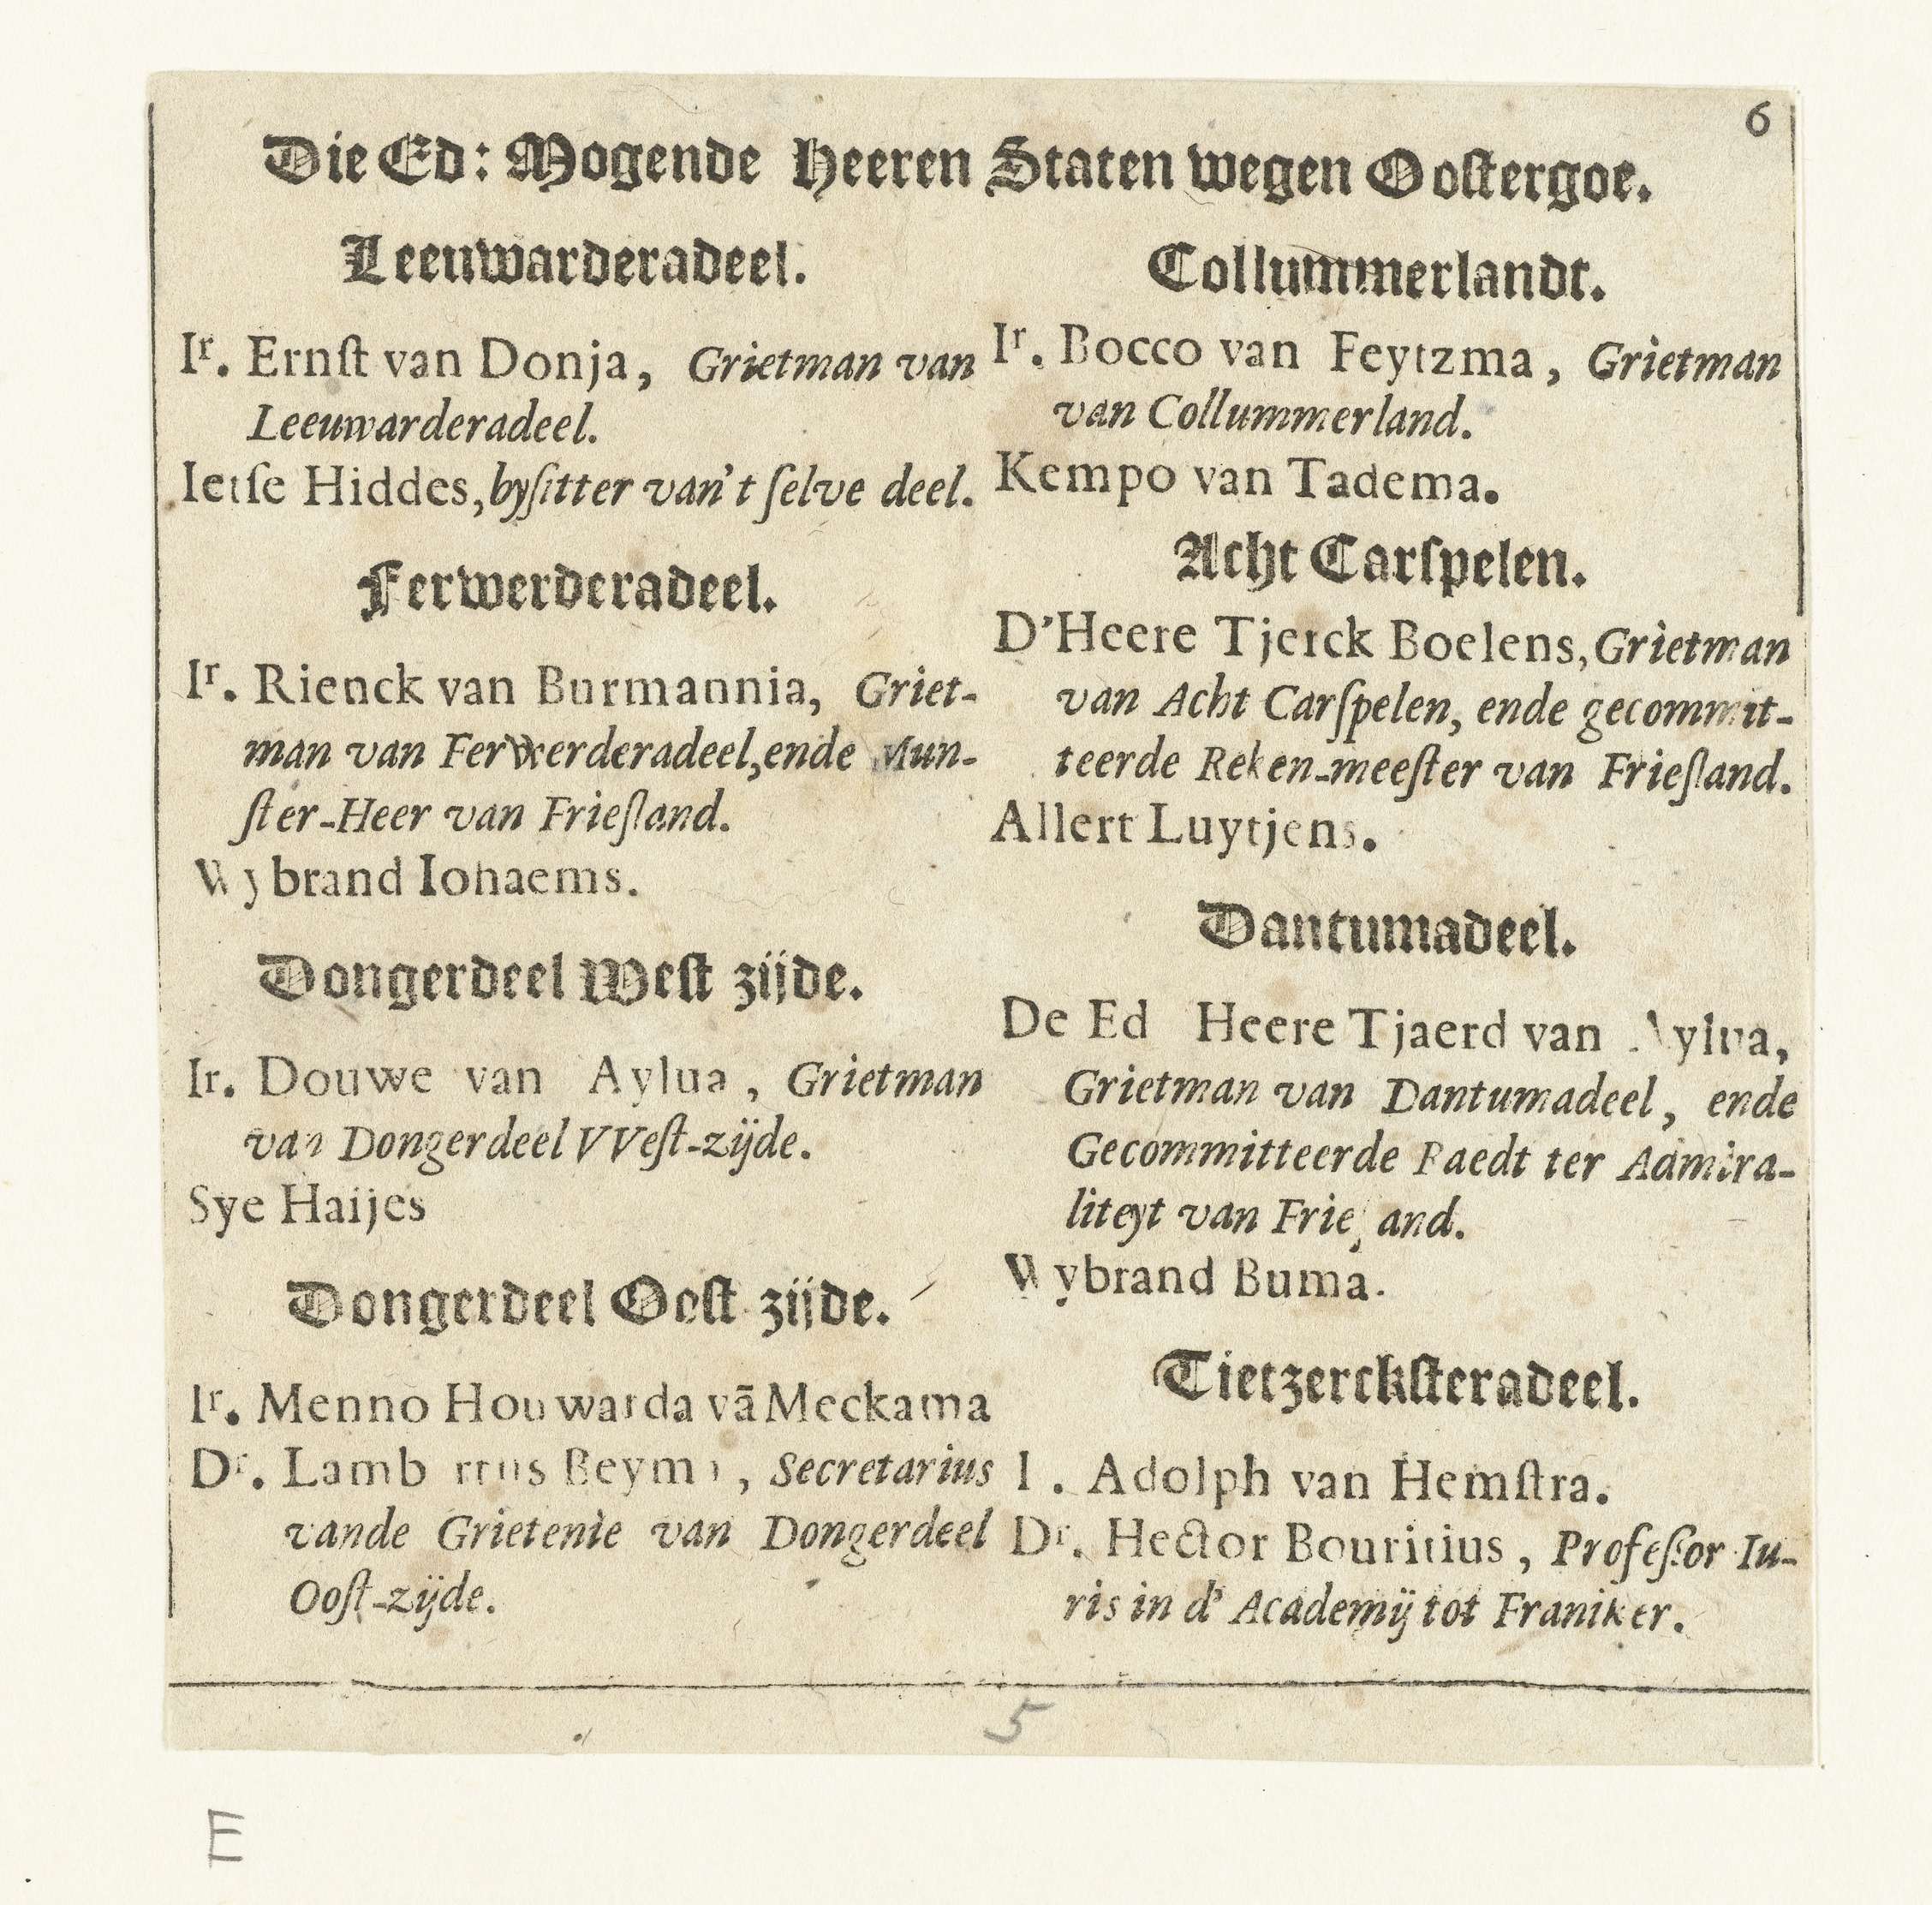 6
Die Ed: Mogende Heeren Staten wegen Oostergoe.
Leeuwarderadeel.
Ir. Ernſt van Donja, Grietman van
Leeuwarderadeel.
Ietſe Hiddes, byſitter van't ſelve deel.
Ferwerderadeel.
Ir. Rienck van Burmannia, Griet-
man van Ferwerderadeel, ende Mun-
ſter-Heer van Frieſland.
Wybrand Iohaems.
Dongerdeel Weſt zijde.
Ir. Douwe van Aylua, Grietman
van Dongerdeel VVeſt-zijde.
Sye Haijes
Dongerdeel Ooſt zijde.
Ir. Menno Houwarda vã Meckama
Dr. Lamb rtus Beyma, Secretarius
vande Grietenie van Dongerdeel
Ooſt-zijde.
Collummerlandt.
Ir. Bocco van Feytzma, Grietman
van Collummerland.
Kempo van Tadema.
Acht Carſpelen.
D'Heere Tjerck Boelens, Grietman
van Acht Carſpelen, ende gecommit-
teerde Reken-meeſter van Frieſland.
Allert Luytjens.
Dantumadeel.
De Ed Heere Tjaerd van Aylva,
Grietman van Dantumadeel, ende
Gecommitteerde Raedt ter Admira-
liteyt van Frieſland.
Wybrand Buma.
Tietzerckſteradeel.
I . Adolph van Hemſtra.
Dr. Hector Bouritius, Profeſſor Iu-
ris in d' Academij tot Franiker.
5
E